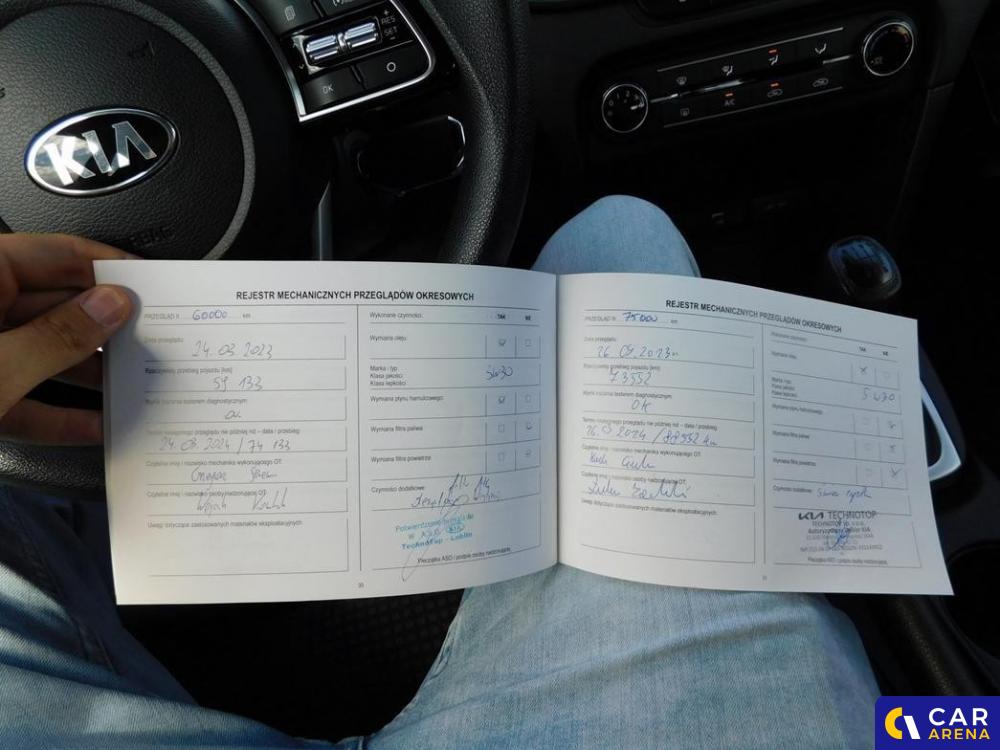 RES
SET
OK
KIA
A/C
REJESTR MECHANICZNYCH PRZEGLĄDÓW OKRESOWYCH
PRZEGLĄD II 60000 km
Data przeglądu
24.03.2023
Rzeczywisty przebieg pojazdu [km]
59 133
Wynik badania testerem diagnostycznym
Termin następnego przeglądu nie później niż – data / przebieg
24.03.2024 / 74 133
Czytelne imię i nazwisko mechanika wykonującego OT:
Czytelne imię i nazwisko osoby nadzorującej OT:
Uwagi dotyczące zastosowanych materiałów eksploatacyjnych
Wykonane czynności: TAK NIE
Wymiana oleju:
Marka / typ 5W30
Klasa jakości
Klasa lepkości
Wymiana płynu hamulcowego:
Wymiana filtra paliwa
Wymiana filtra powietrza:
Czynności dodatkowe:
W ASO KIA
TechnoTop - Lublin
Pieczątka ASO i podpis osoby nadzorującej
30
REJESTR MECHANICZNYCH PRZEGLĄDÓW OKRESOWYCH
PRZEGLĄD IV 75000 km
Data przeglądu
26.09.2023
Rzeczywisty przebieg pojazdu [km]
73552
Wynik badania testerem diagnostycznym
OK
Termin następnego przeglądu nie później niż – data / przebieg
26.09.2024 / 88552 km
Czytelne imię i nazwisko mechanika wykonującego OT:
Czytelne imię i nazwisko osoby nadzorującej OT:
Uwagi dotyczące zastosowanych materiałów eksploatacyjnych:
Wykonane czynności: TAK NIE
Wymiana oleju:
Marka / typ
Klasa jakości 5W30
Klasa lepkości
Wymiana płynu hamulcowego:
Wymiana filtra paliwa
Wymiana filtra powietrza:
Czynności dodatkowe:
KIA TECHNOTOP
Pieczątka ASO i podpis osoby nadzorującej
31
CAR
ARENA